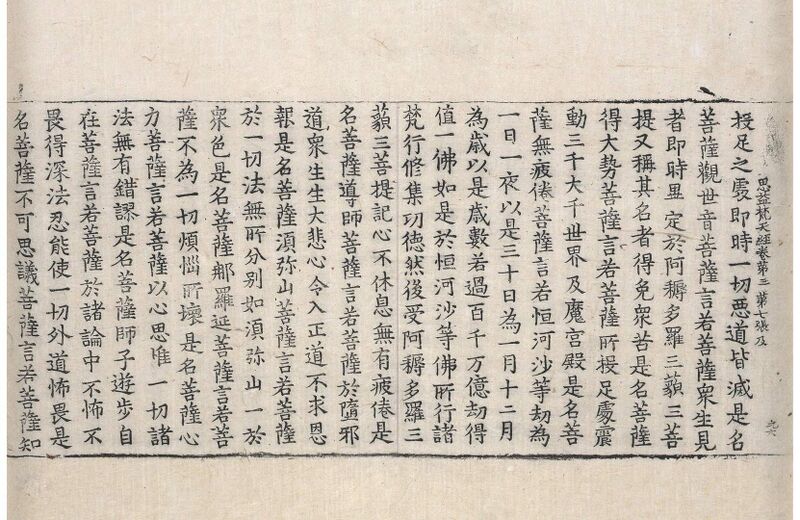 思益梵天經卷第三 第七張 及
投足之處即時一切惡道皆滅是名
菩薩觀世音菩薩言若菩薩衆生見
者即時畢定於阿耨多羅三藐三菩
提又稱其名者得免衆苦是名菩薩
得大勢菩薩言若菩薩所投足處震
動三千大千世界及魔宫殿是名菩
薩無疲倦菩薩言若恒河沙等劫為
一日一夜以是三十日為一月十二月
為歲以是歲數若過百千万億劫得
值一佛如是於恒河沙等佛所行諸
梵行修集功德然後受阿耨多羅三
藐三菩提記心不休息無有疲倦是
名菩薩導師菩薩言若菩薩於墮邪
道衆生生大悲心令入正道不求恩
報是名菩薩須弥山菩薩言若菩薩
於一切法無所分别如須弥山一於
衆色是名菩薩那羅延菩薩言若菩
薩不為一切煩惱所壞是名菩薩心
力菩薩言若菩薩以心思惟一切諸
法無有錯謬是名菩薩師子遊步自
在菩薩言若菩薩於諸論中不怖不
畏得深法忍能使一切外道怖畏是
名菩薩不可思議菩薩言若菩薩知